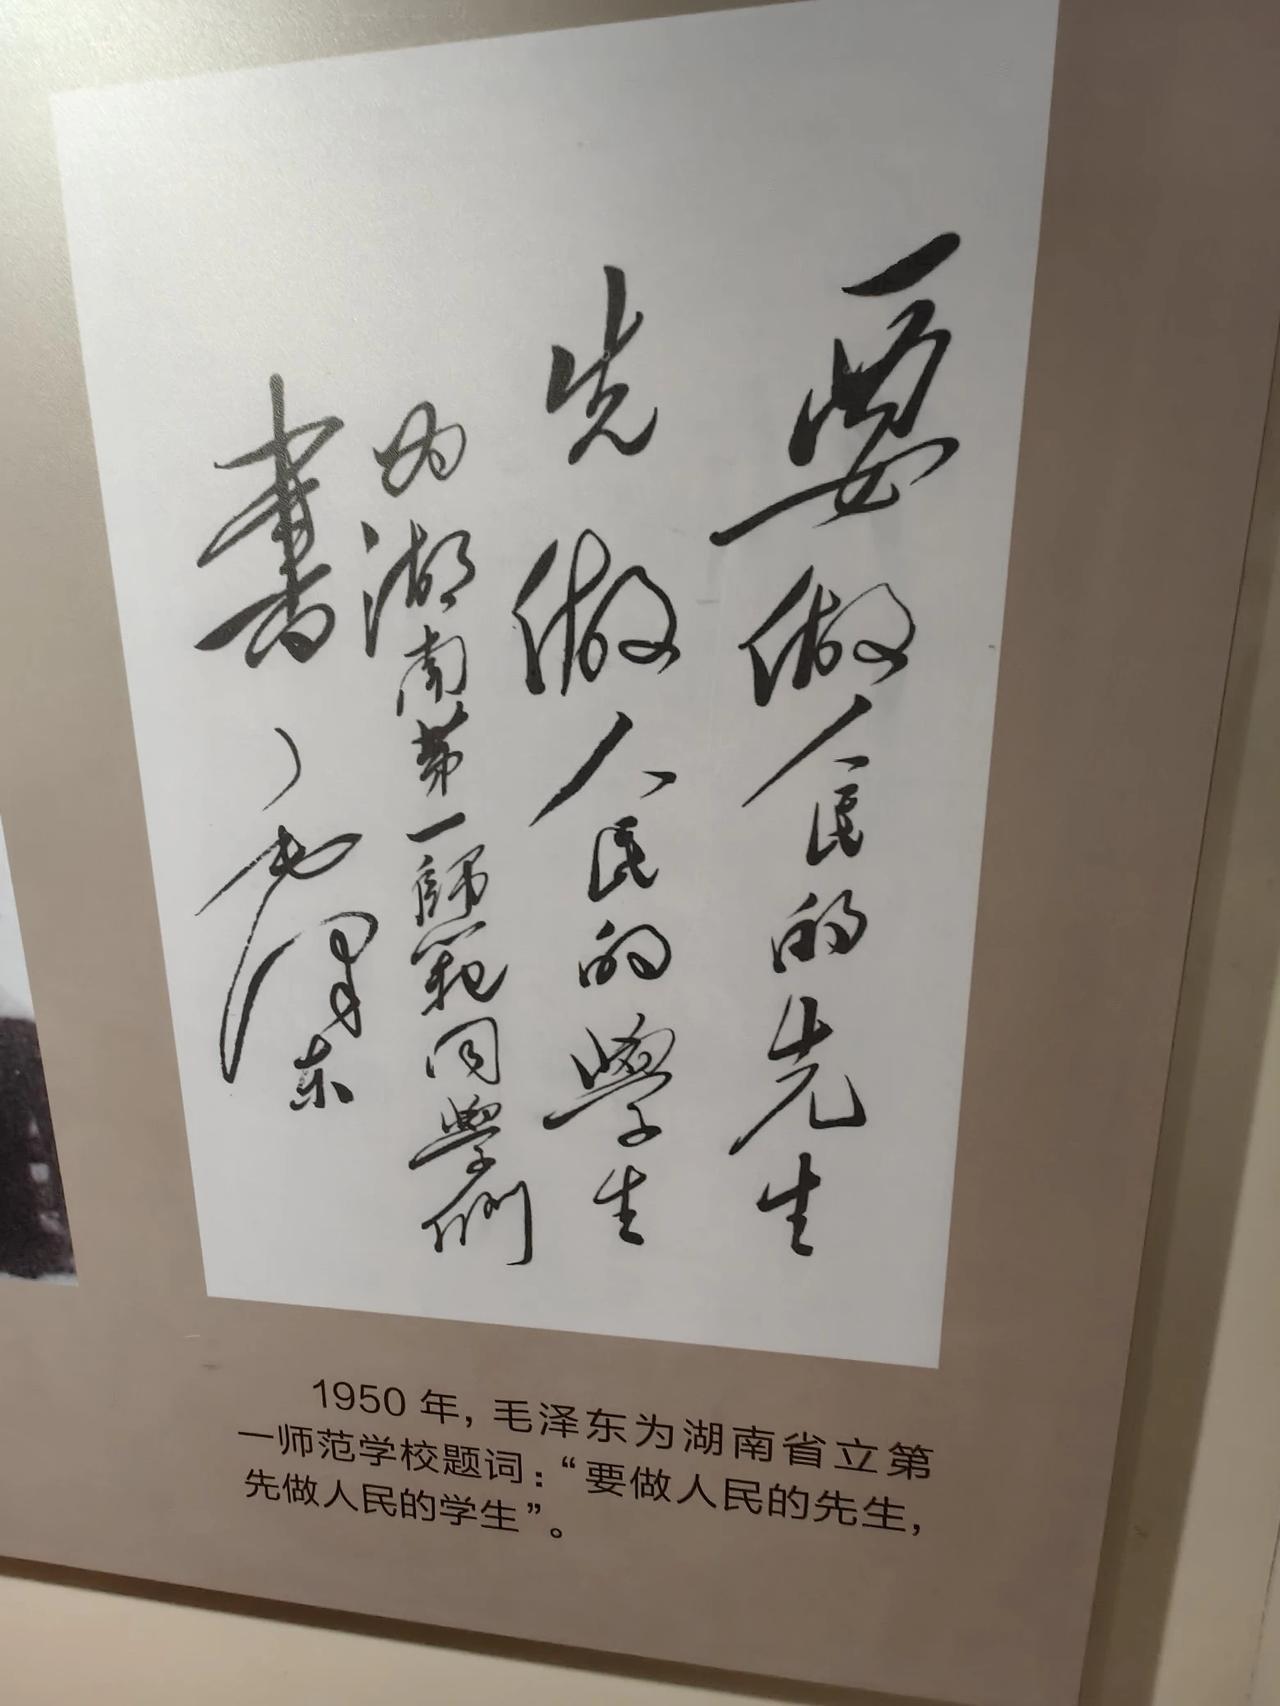 要做人民的先生
先做人民的學生
为湖南第一師範同學們
書 毛泽东
1950 年，毛泽东为湖南省立第
一师范学校题词：“要做人民的先生，
先做人民的学生”。